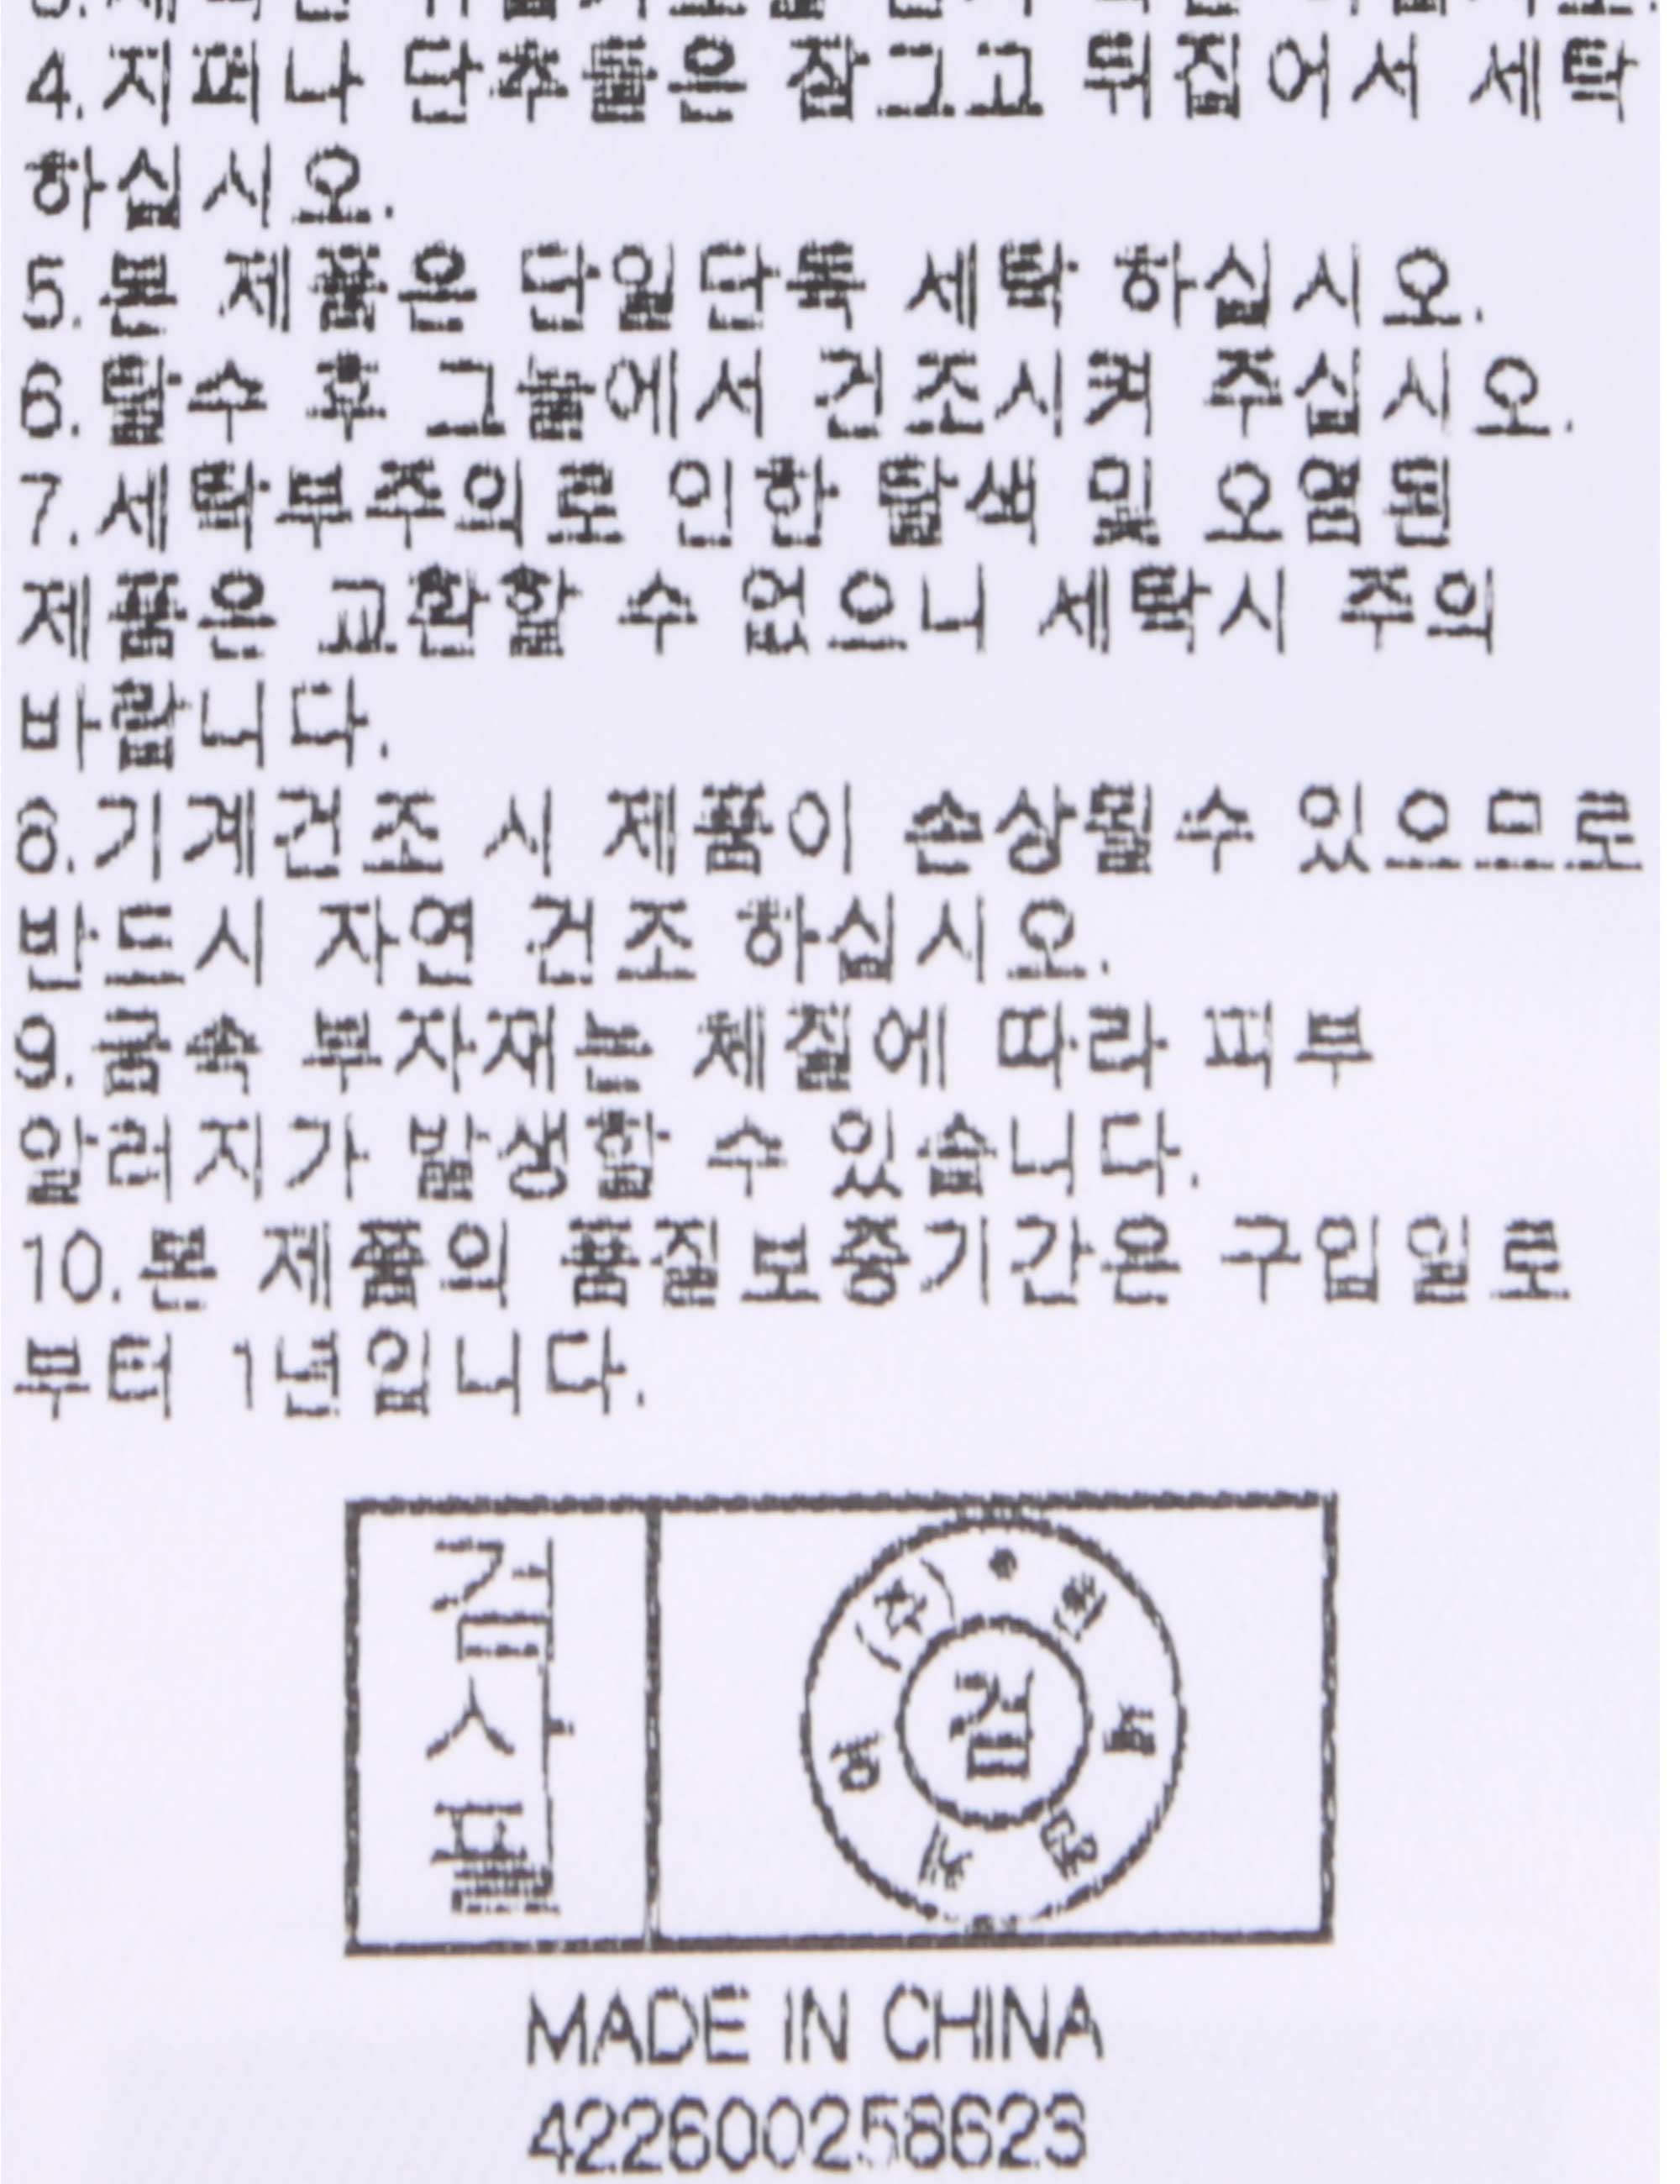 4.지퍼나 단추들은 잠그고 뒤집어서 세탁
하십시오.
5.본 제품은 단일단독 세탁 하십시오.
6.탈수 후 그늘에서 건조시켜 주십시오.
7.세탁부주의로 인한 탈색 및 오염된
제품은 교환할 수 없으니 세탁시 주의
바랍니다.
8.기계건조 시 제품이 손상될수 있으므로
반드시 자연 건조 하십시오.
9.금속 부자재는 체질에 따라 피부
알러지가 발생할 수 있습니다.
10.본 제품의 품질보증기간은 구입일로
부터 1년입니다.
검사필
검
MADE IN CHINA
422600258623